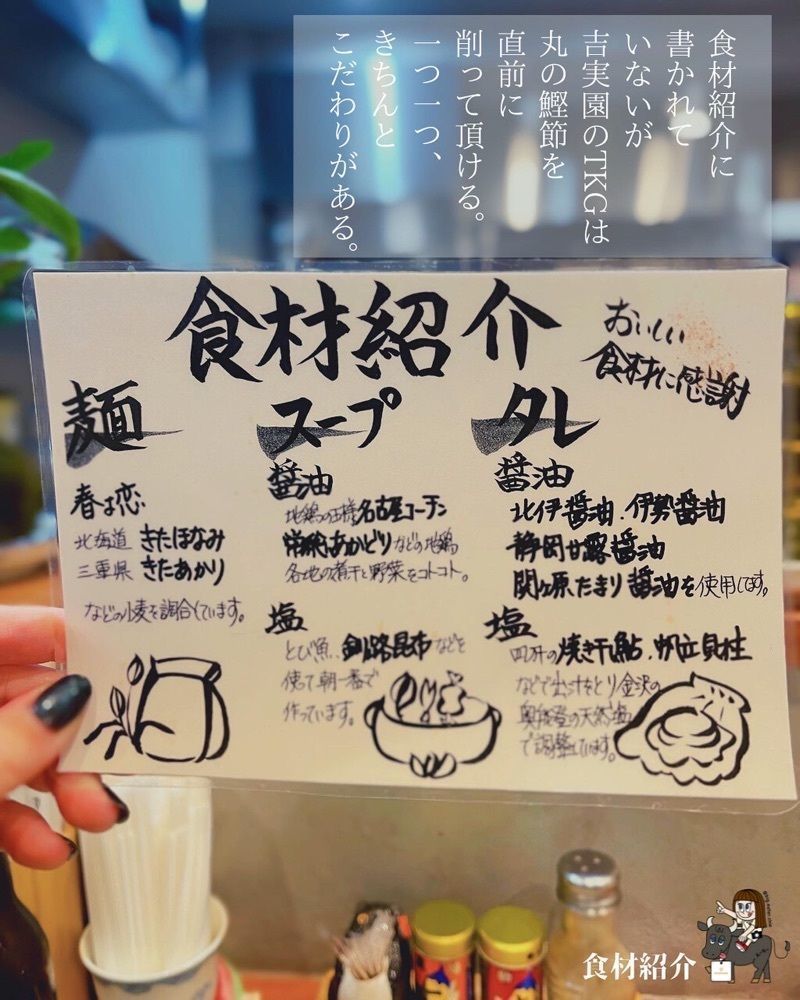 食材紹介に
書かれて
いないが
吉実園のTKGは
丸の鰹節を
直前に
削って頂ける。
一つ一つ、
きちんと
こだわりがある。
食材紹介
おいしい
食材に感謝
麺
春よ恋
北海道 きたほなみ
三重県 きたあかり
などの小麦を調合しています。
スープ
醤油
地鶏の王様名古屋コーチン
などの地鶏
各地の煮干と野菜をコトコト。
塩
とび魚、釧路昆布などを
使って朝一番で
作っています。
タレ
醤油
北伊醤油、伊勢醤油
静岡甘露醤油
関ヶ原たまり醤油を使用してます。
塩
焼き干し鮎、帆立貝柱
などで出汁をとり金沢の
奥能登の天然塩
で調整しています。
食材紹介